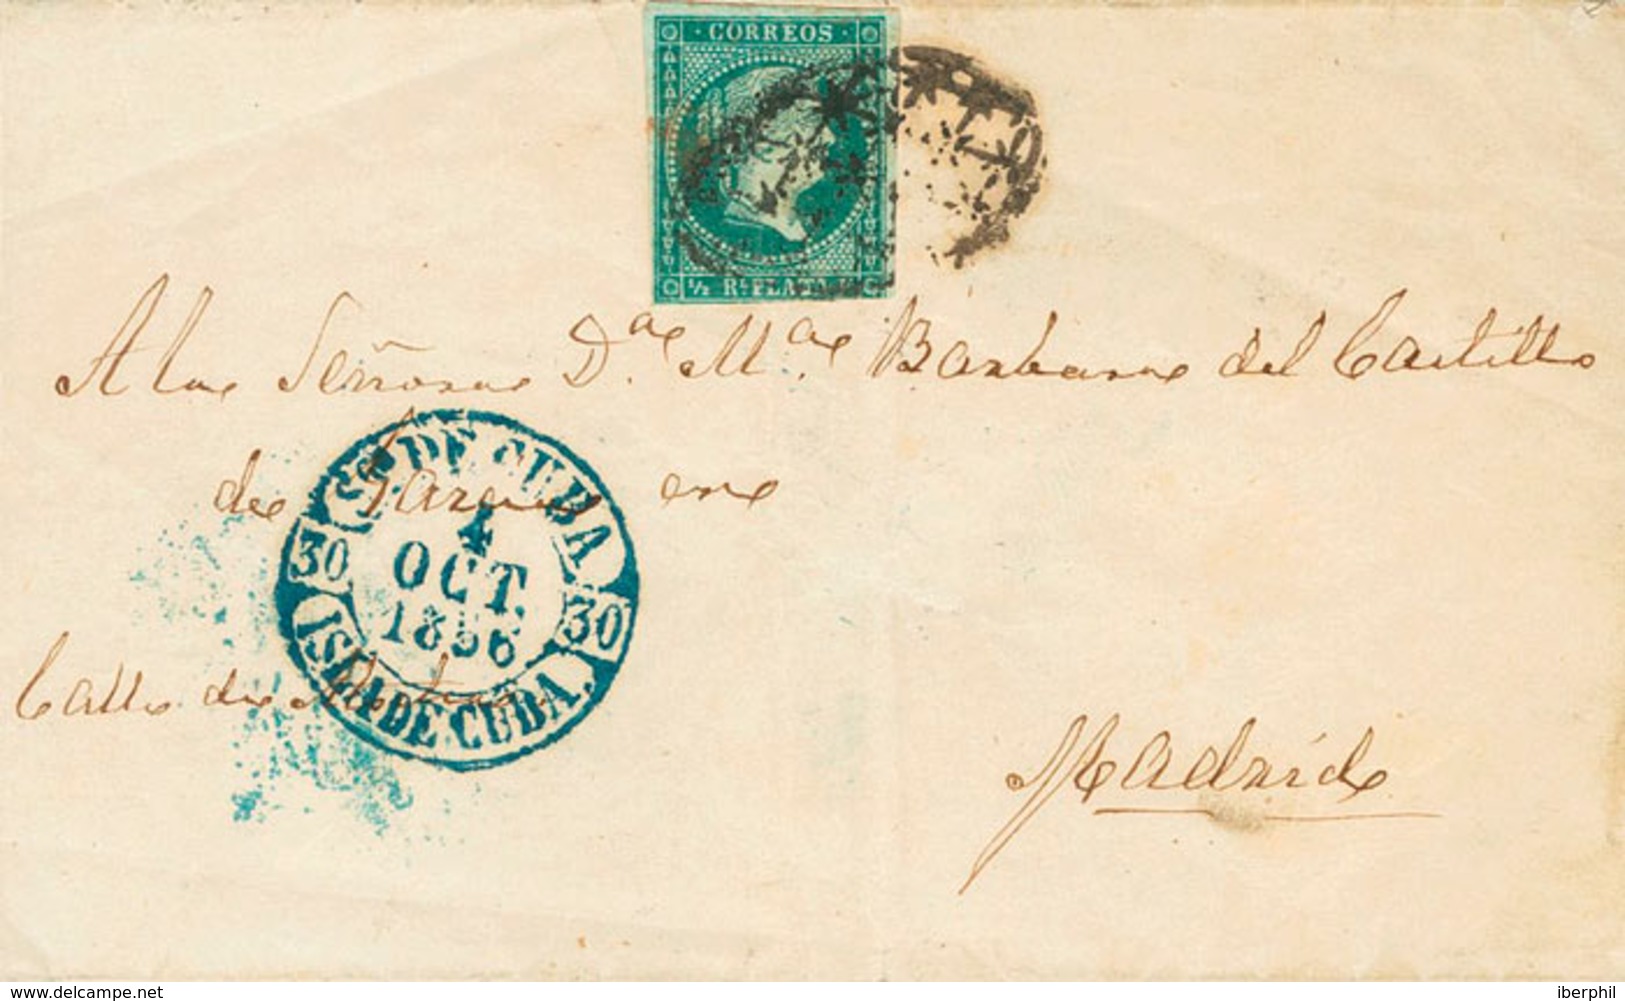 CORREOS
½ Rl. PLATA
A la Señora Da. Ma. Barbara del Castillo
de en
ST. DE CUBA
4
OCT.
1856
30
30
ISLA DE CUBA.
Calle de
Madrid
www.delcampe.net
iberphil